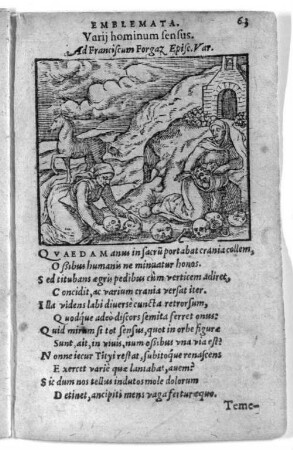 EMBLEMATA. 63
Varij hominum sensus.
Ad Franciscum Forgaz Episc. Var.
QVAEDAM anus in sacrũ portabat crania collem,
Ossibus humanis ne minuatur honos.
Sed titubans ægris pedibus cùm verticem adiret,
Concidit, ac varium crania versat iter.
Illa videns labi diuersè cuncta retrorsum,
Quodque adeò discors semita ferret onus:
Quid mirum si tot sensus, quot in orbe figuræ
Sunt, ait, in viuis, num ossibus vna via est?
Nonne iecur Tityi restat, subitoque renascens
Exercet variè quæ laniabat, auem?
Sic dum nos tellus indutos mole dolorum
Detinet, ancipiti mens vaga fertur equo.
Teme-